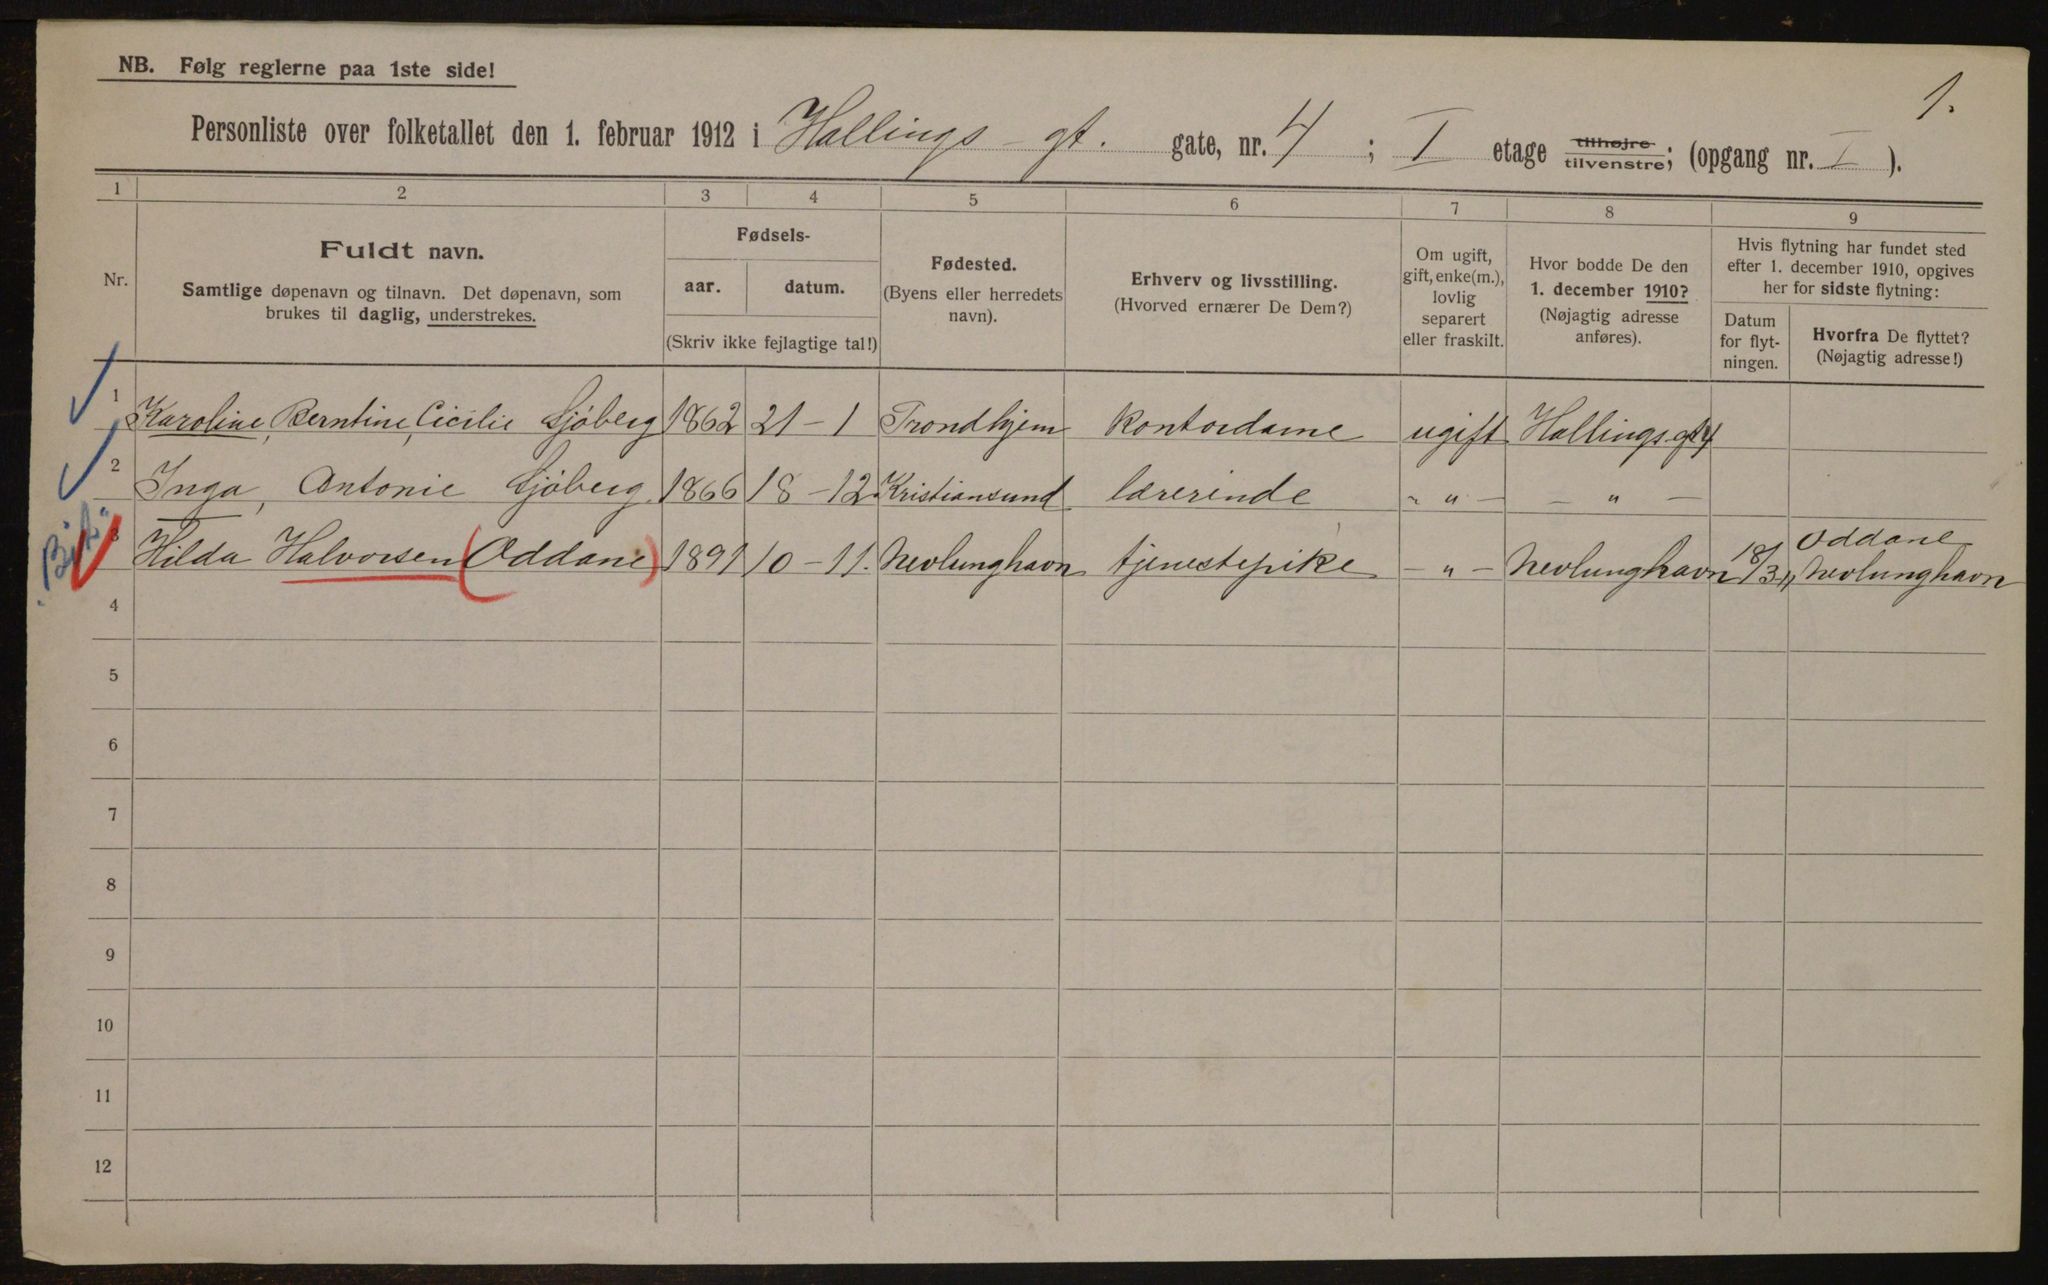 NB. Følg reglerne paa 1ste side!
1.
Personliste over folketallet den 1. februar 1912 i Hallings - gt. gate, nr. 4 ; I etage tilhøjre tilvenstre; (opgang nr. I ).
1 2 3 4 5 6 7 8 9
Nr.
Fuldt navn.
Samtlige døpenavn og tilnavn. Det døpenavn, som
brukes til daglig, understrekes.
Fødsels-
aar. datum.
(Skriv ikke fejlagtige tal!)
Fødested.
(Byens eller herredets
navn).
Erhverv og livsstilling.
(Hvorved ernærer De Dem?)
Om ugift,
gift, enke(m.),
lovlig
separert
eller fraskilt.
Hvor bodde De den
1. december 1910?
(Nøjagtig adresse
anføres).
Hvis flytning har fundet sted
efter 1. december 1910, opgives
her for sidste flytning:
Datum
for flyt-
ningen.
Hvorfra De flyttet?
(Nøjagtig adresse!)
1 Karoline, Berntine, Cicilie Sjöberg 1862 21-1 Trondhjem Kontordame ugift Hallings gt 4
2 Inga, Antonie Sjöberg. 1866 18-12 Kristiansund lærerinde - " - - " -
3 Hilda Halvorsen (Oddane) 1891 10-11. Nevlunghavn tjenestepike - " - Nevlunghavn 18/3 11 Oddane Nevlunghavn
4
5
6
7
8
9
10
11
12